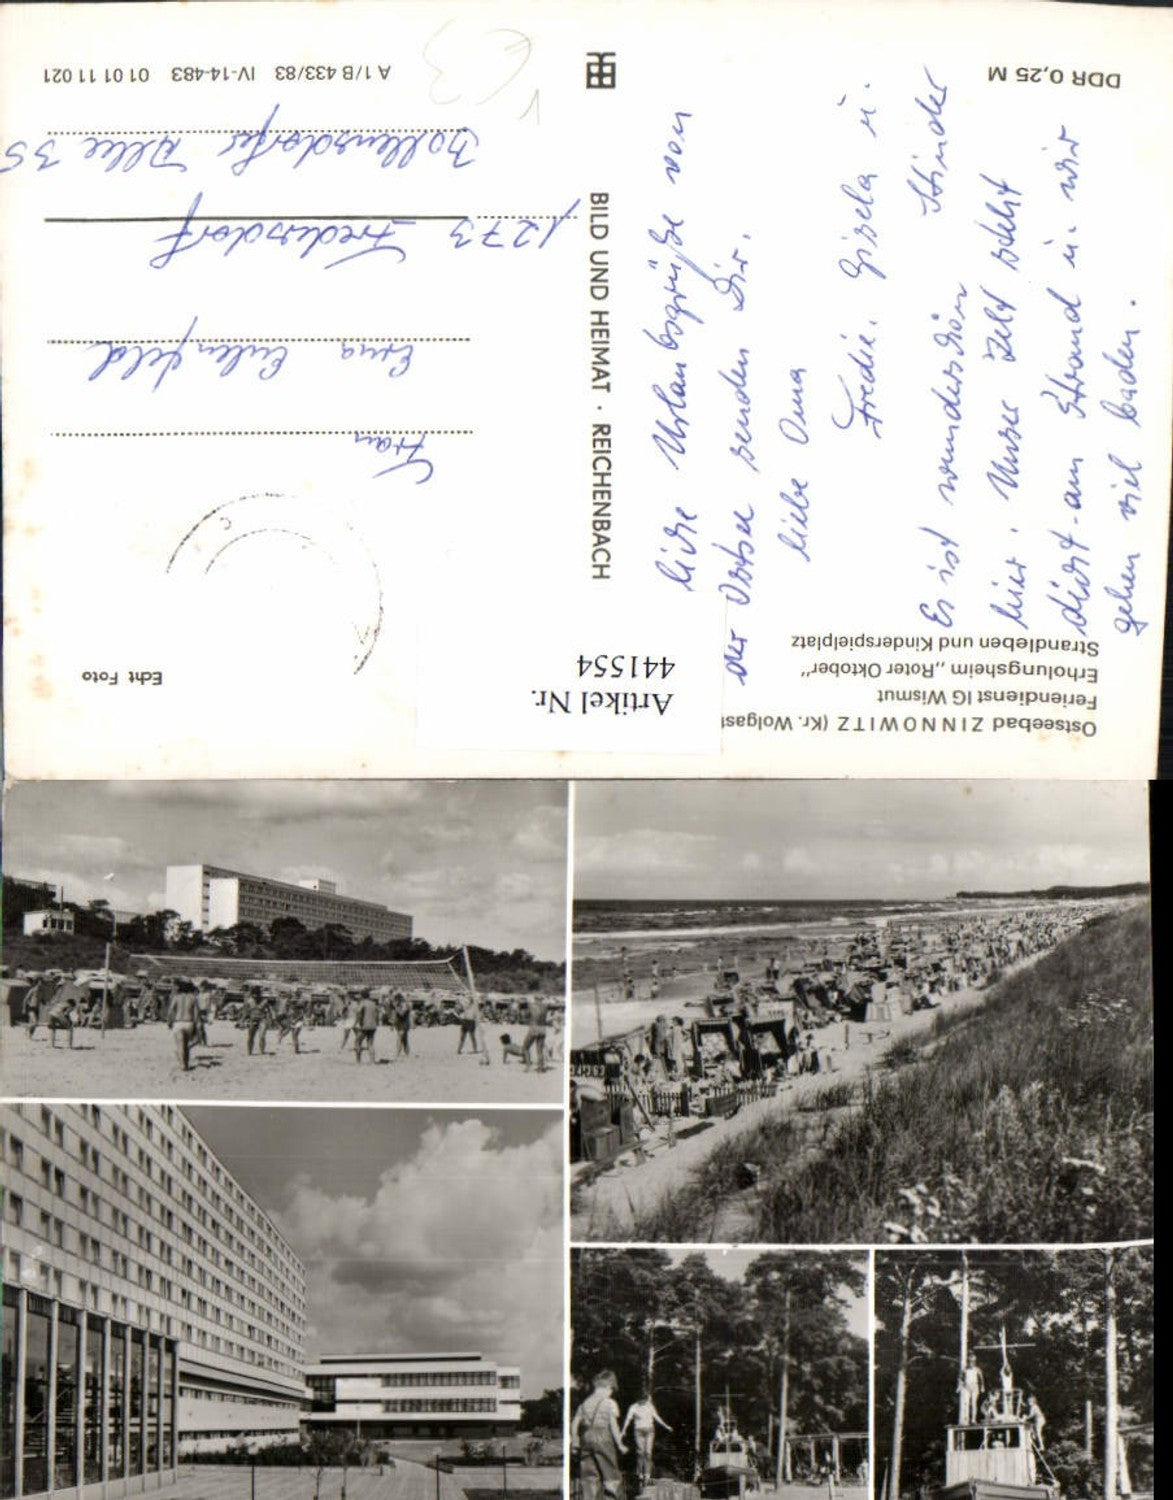 Ostseebad ZINNOWITZ (Kr. Wolgast
Feriendienst IG Wismut
Erholungsheim „Roter Oktober“
Strandleben und Kinderspielplatz
Artikel Nr.
441554
Echt Foto
liebe Urlaubsgrüße von
der Ostsee senden Dir,
liebe Oma
Fredie, Gisela u.
Kinder
Es ist wunderschön
hier. Unser Zelt steht
dicht am Strand u. wir
gehen viel baden.
Frau
Erna Eulenfeld
1273 Fredersdorf
Bollensdorfer Allee 35
BILD UND HEIMAT · REICHENBACH
DDR 0,25 M
A 1/B 433/83 IV-14-483 01 01 11 021